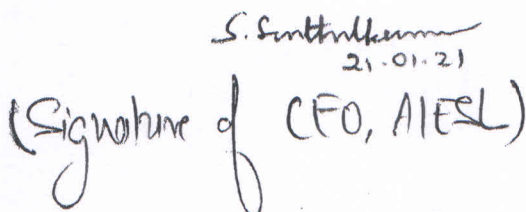 S. Senthilkumar
21.01.21
(Signature of CFO, AIESL)